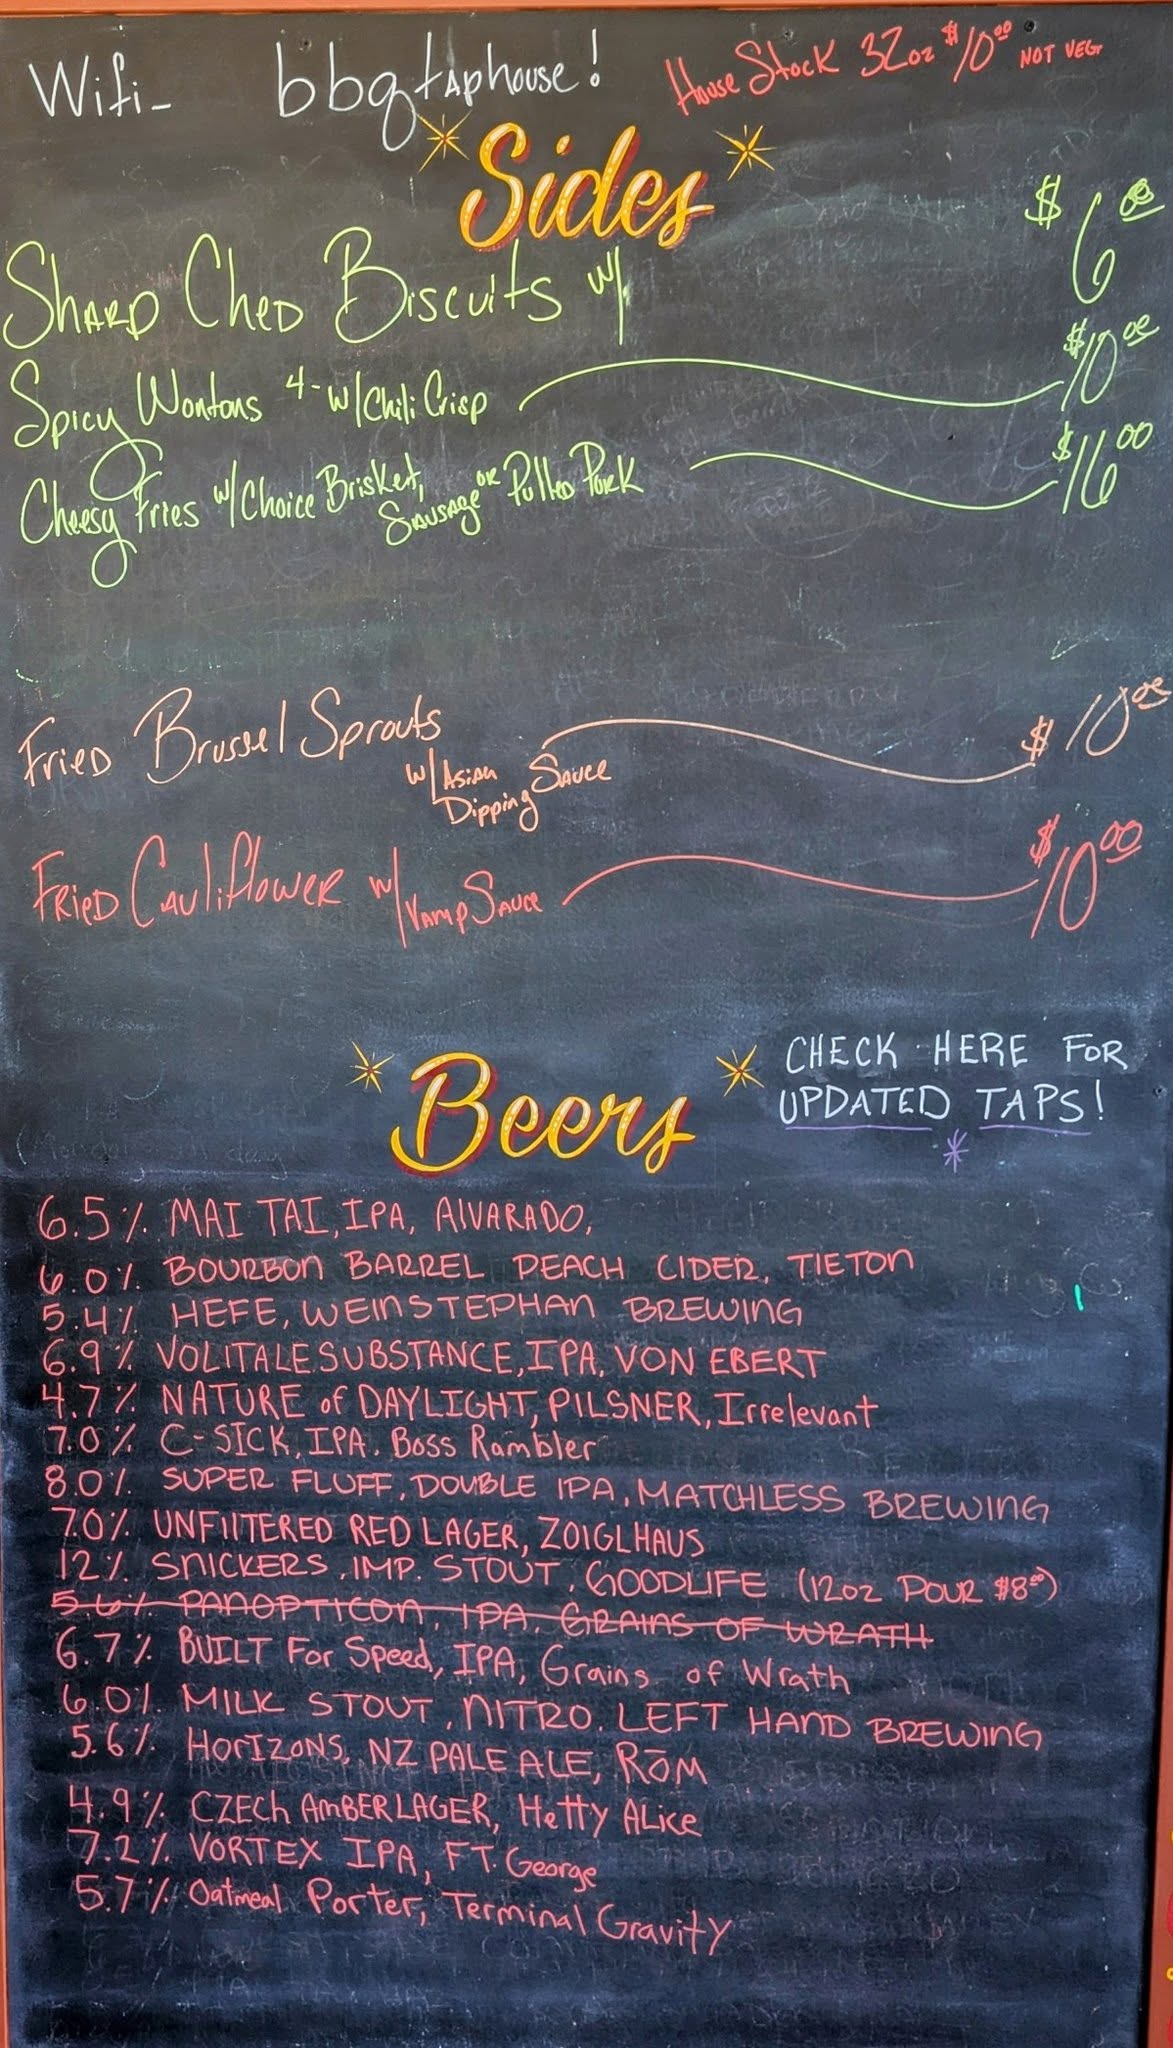 Wifi- bbqtaphouse!
House Stock 32oz $10.00 NOT VEG.
Sides
Sharp Ched Biscuits w/ $6.00
Spicy Wontons 4- w/Chili Crisp $10.00
Cheesy Fries w/Choice Brisket, $16.00
Sausage or Pulled Pork
Fried Brussel Sprouts $10.00
w/Asian Sauce
Dipping
Fried Cauliflower w/Vamp Sauce $10.00
CHECK HERE FOR
UPDATED TAPS!
Beers
6.5% MAI TAI, IPA, AlVARADO,
6.0% BOURBON BARREL PEACH CIDER, TIETON
5.4% HEFE, WEINSTEPHAN BREWING
6.9% VOLITALE SUBSTANCE, IPA, VON EBERT
4.7% NATURE of DAYLIGHT, PILSNER, Irrelevant
7.0% C-SICK, IPA. Boss Rambler
8.0% SUPER FLUFF, DOUBLE IPA, MATCHLESS BREWING
7.0% UNFIlTERED RED LAGER, ZOIGLHAUS
12% SNICKERS, IMP. STOUT, GOODLIFE (12oz POUR $8.00)
5.6% PANOPTICON, IPA, GRAINS OF WRATH
6.7% BUILT For Speed, IPA, Grains of Wrath
6.0% MILK STOUT, NITRO. LEFT HAND BREWING
5.6% HorIZONS, NZ PALE ALE, RōM
4.9% CZECh AmBER LAGER, HeTTy ALice
7.2% VORTEX IPA, FT. George
5.7% Oatmeal Porter, Terminal Gravity